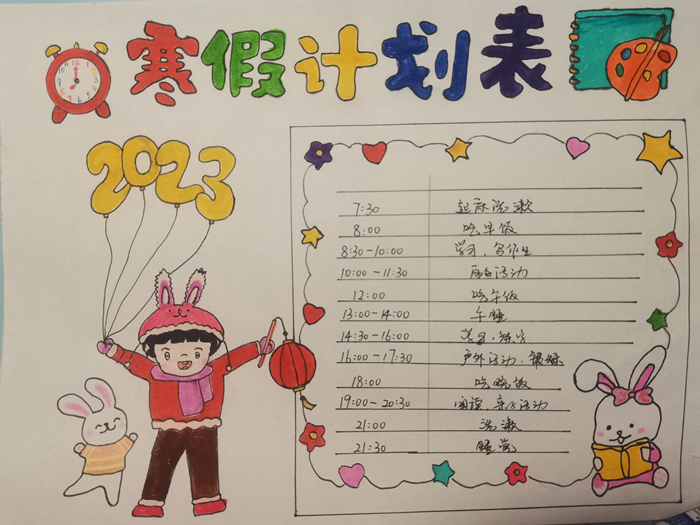 寒假计划表
2023
7:30 起床洗漱
8:00 吃早饭
8:30-10:00 学习、写作业
10:00-11:30 活动
12:00 吃午饭
13:00-14:00 午睡
14:30-16:00 学习、练字
16:00-17:30 户外活动、锻炼
18:00 吃晚饭
19:00-20:30 阅读、亲子活动
21:00 洗漱
21:30 睡觉